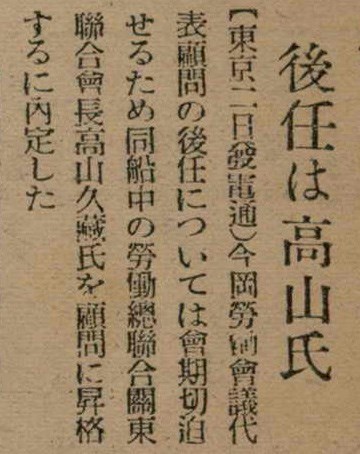 後任は高山氏
【東京二日發電通】今岡勞働會議代
表顧問の後任については會期切迫
せるため同船中の勞働總聯合關東
聯合會長高山久藏氏を顧問に昇格
するに內定した